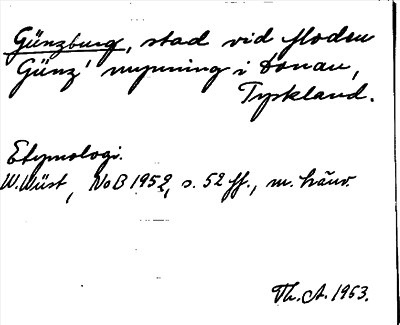 Günzburg, stad vid floden
Günz' mynning i Donau,
Tyskland.
Etymologi.
W. Wüst, NoB 1952, s. 52 ff., m. hänv.
Th. A. 1953.